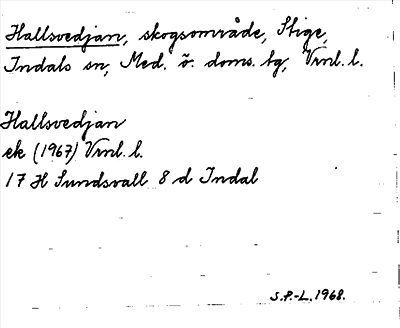 Hallsvedjan, skogsområde, Stige,
Indals sn, Med. ö. doms. tg, Vrnl. l.
Hallsvedjan
ek (1967) Vrnl. l.
17 H Sundsvall 8 d Indal
S.P.-L. 1968.